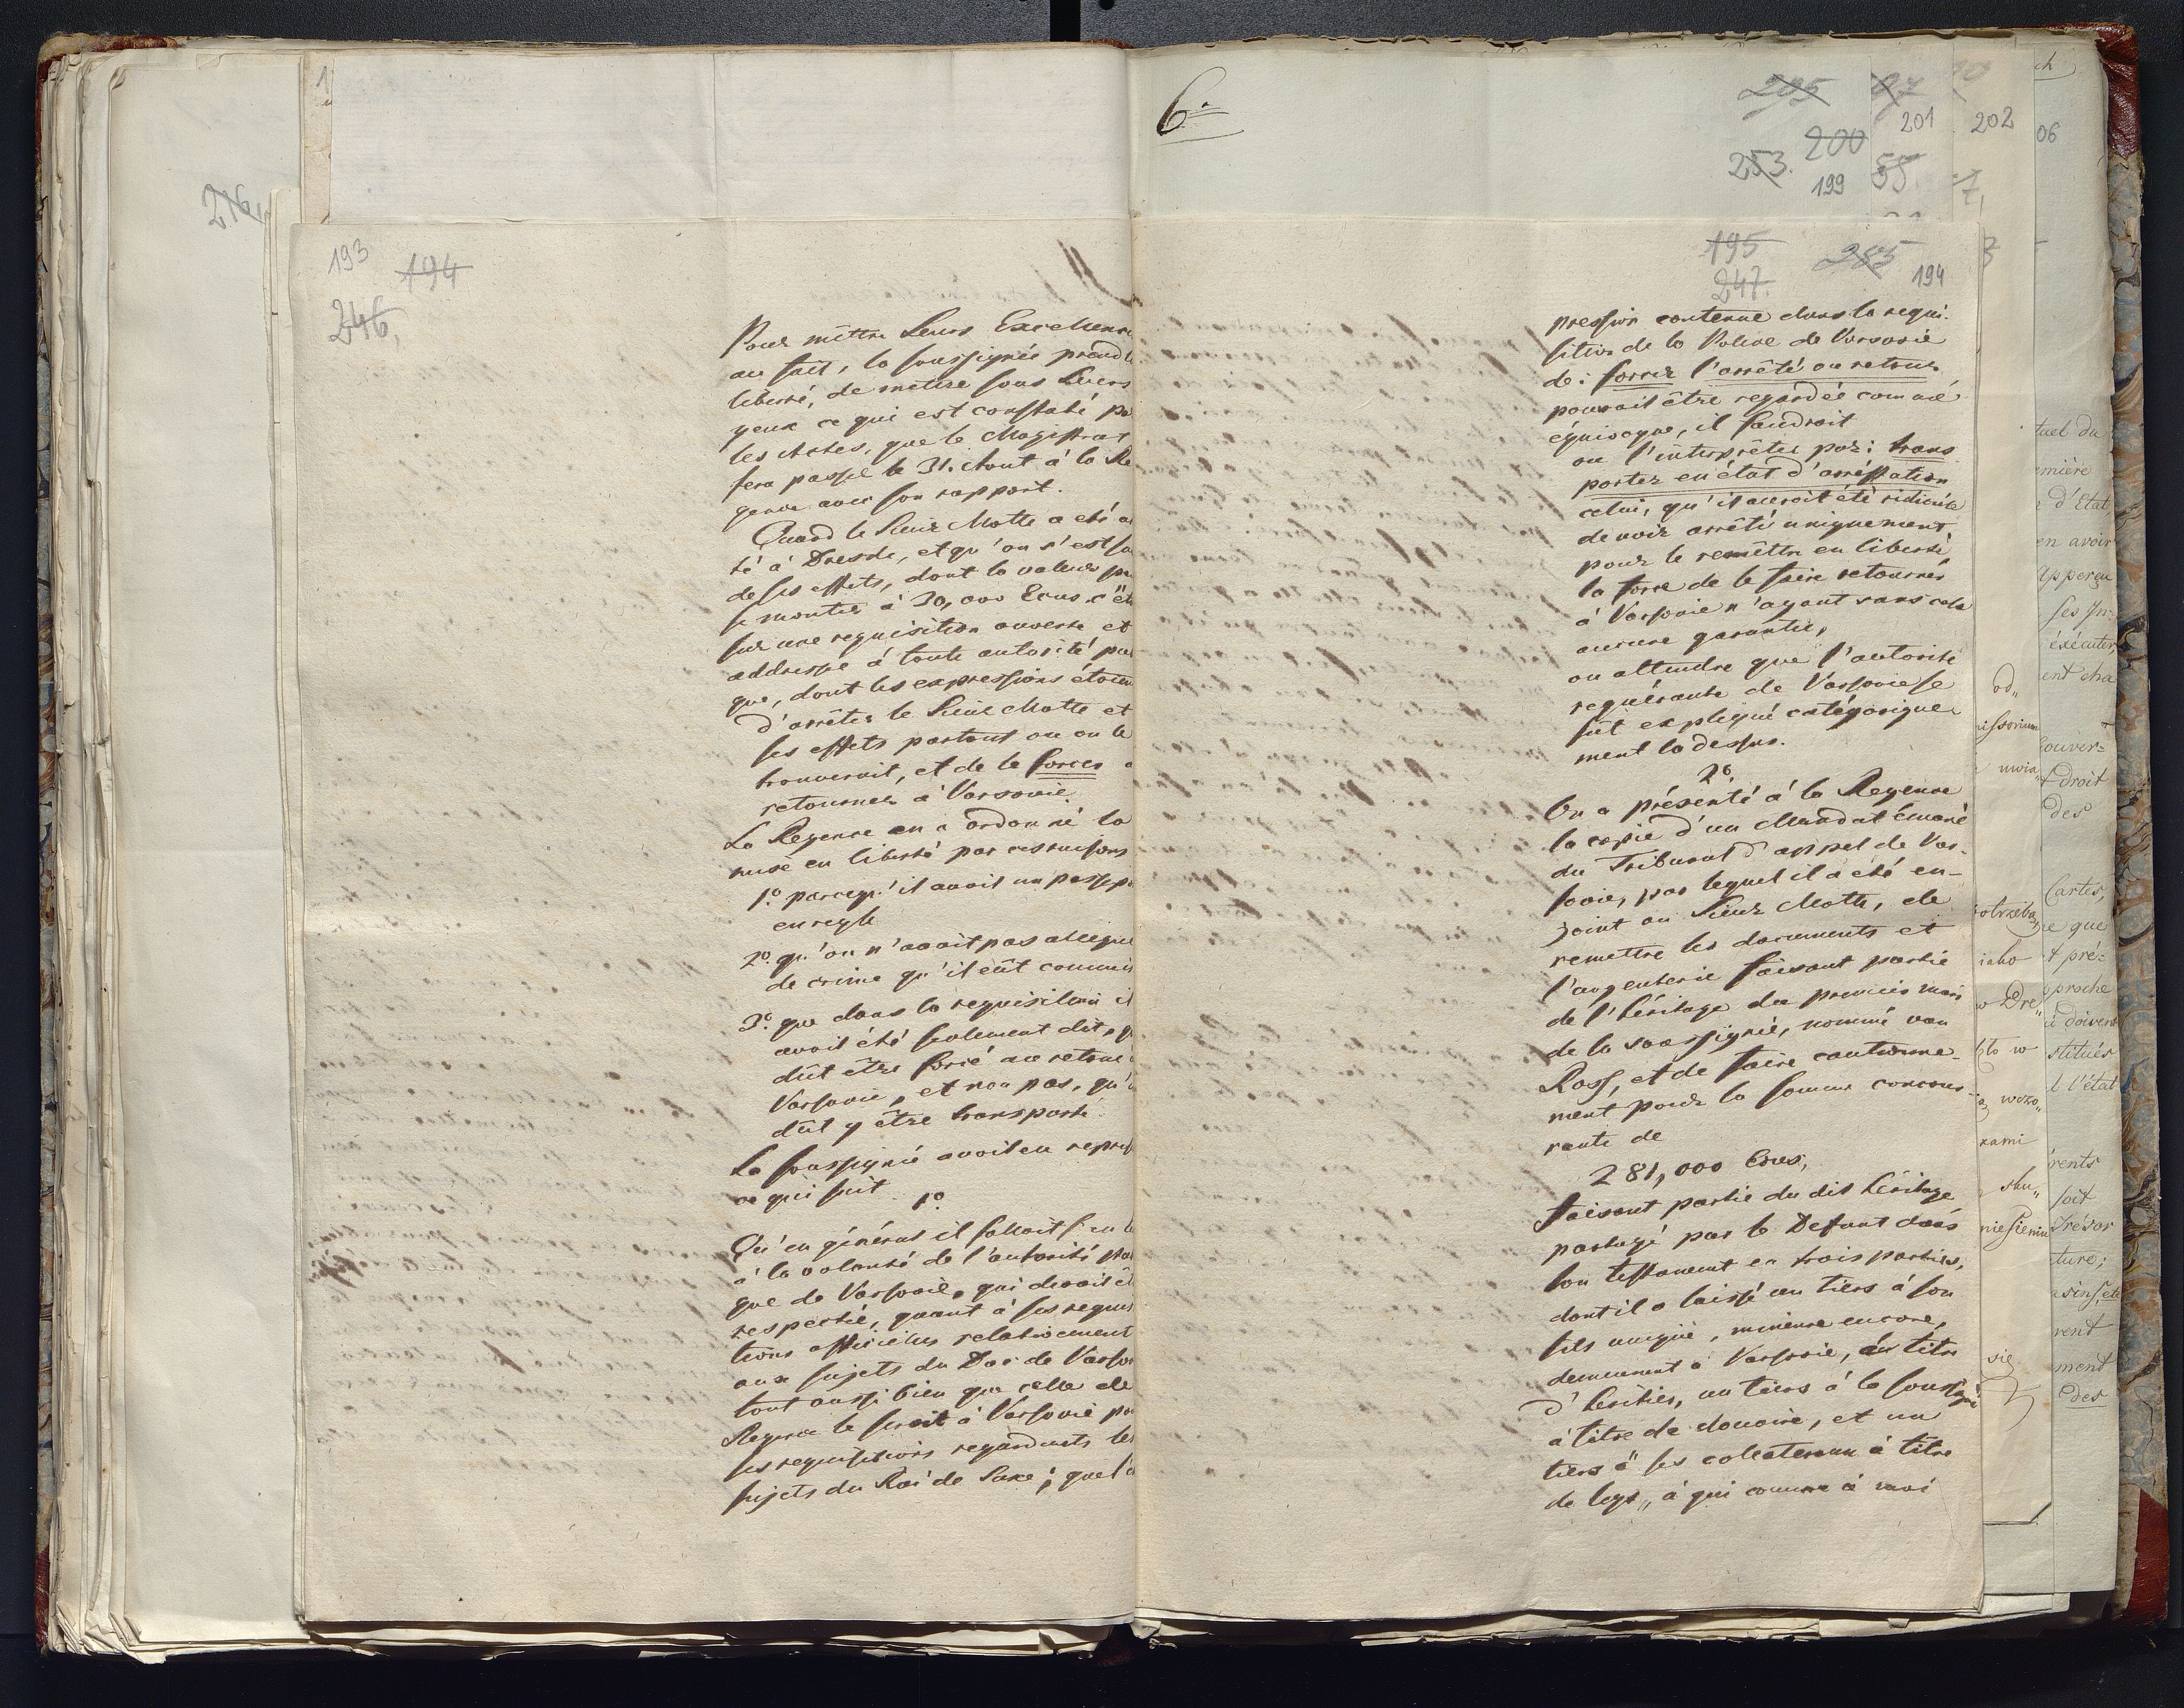 216.
193
194
246.
Pour mêttre Leurs Excellen
au fait, la soussignée prend l
liberté, de mêttre sous Leurs
yeux ce qui est constaté pa
les Actes, que le Magistrat
fera passé le 31. Aout à la Re
gence avec son rapport.
Quand le Sieur Motte a eté a
té à Dresde, et qu'on s'est sa
de ses effets, dont la valeur pe
se monter à 30,000 Ecus, c'ét
sur une requisition ouverte et
addressée à toute autorité pu
que, dont les expressions étoien
d'arrêter le Sieur Motte et
ses effets partout ou on le
trouveroit, et de le forcer a
retourner à Varsovie.
La Regence en a ordonné la
mise en liberté par ces raisons
1º parcequ'il avoit un passepo
en regle
2º qu'on n'avoit pas allegué
de crime qu'il eût commis
3º que dans la requisition il
avoit été seulement dit, q
dût être forcé au retour
Varsovie, et non pas, qu'i
dût y être transporté.
La soussignée avoit en repres
ce qui suit
1º
Qu'en général il falloit s'en te
à la volonté de l'autorité pu
que de Varsovie, qui devoit êt
respectée, quant à ses requis
tions officielles relativement
aux sujets du Duc de Varso
tout aussi bien que celle de
Regence le seroit à Varsovie po
ses requisitions regardants les
sujets du Roi de Saxe; que l'e
6.
205
87
10
201
202
06
200
253.
199
55
195
247.
285
194
pression contenue dans la requi-
sition de la Police de Varsovie
de: forcer l'arrêté au retour
pouvoit être regardée comme
équivoque, il faudroit
ou l'interprêter par: trans
porter en état d'arrestation
celui, qu'il auroit été ridicule
de voir arrêté uniquement
pour le remêttre en liberté
la force de le faire retourner
à Varsovie n'ayant sans cela
aucune garantie,
ou attendre que l'autorité
requérante de Varsovie se
fût expliqué catégorique-
ment la dessus.
2º
On a présenté à la Regence
la copie d'un Mandat émané
du Tribunal d'appel de Var-
sovie, par lequel il a été en-
joint au Sieur Motte, de
remettre les documents et
l'argenterie faisant partie
de l'héritage du premier mari
de la soussignée, nommé van
Ross, et de faire cautionne-
ment pour la somme concour-
rante de
281,000 Ecus,
faisant partie du dit héritage
partagé par le Defunt dans
son testament en trois parties,
dont il a laissé un tiers à son
fils unique, mineure encore,
demeurant à Varsovie, au titre
d'heritier, un tiers à la soussigné
à titre de douaire, et un
tiers à ses collateraux à titre
de legs, à qui comme à moi
od,,
nissorium
w Dre,,
sto w
wszo,,
kami
stu,,
się
ch
tuel du
emière
d'Etat
en avoir
Apperçu
ses In-
éxécuter
ent cha
ouver=
t droit
des
Cartes,
e que
t pré=
proche
i doivent
stitués
l l'état
rents
soit
Trésor
ture;
rent
ment
des